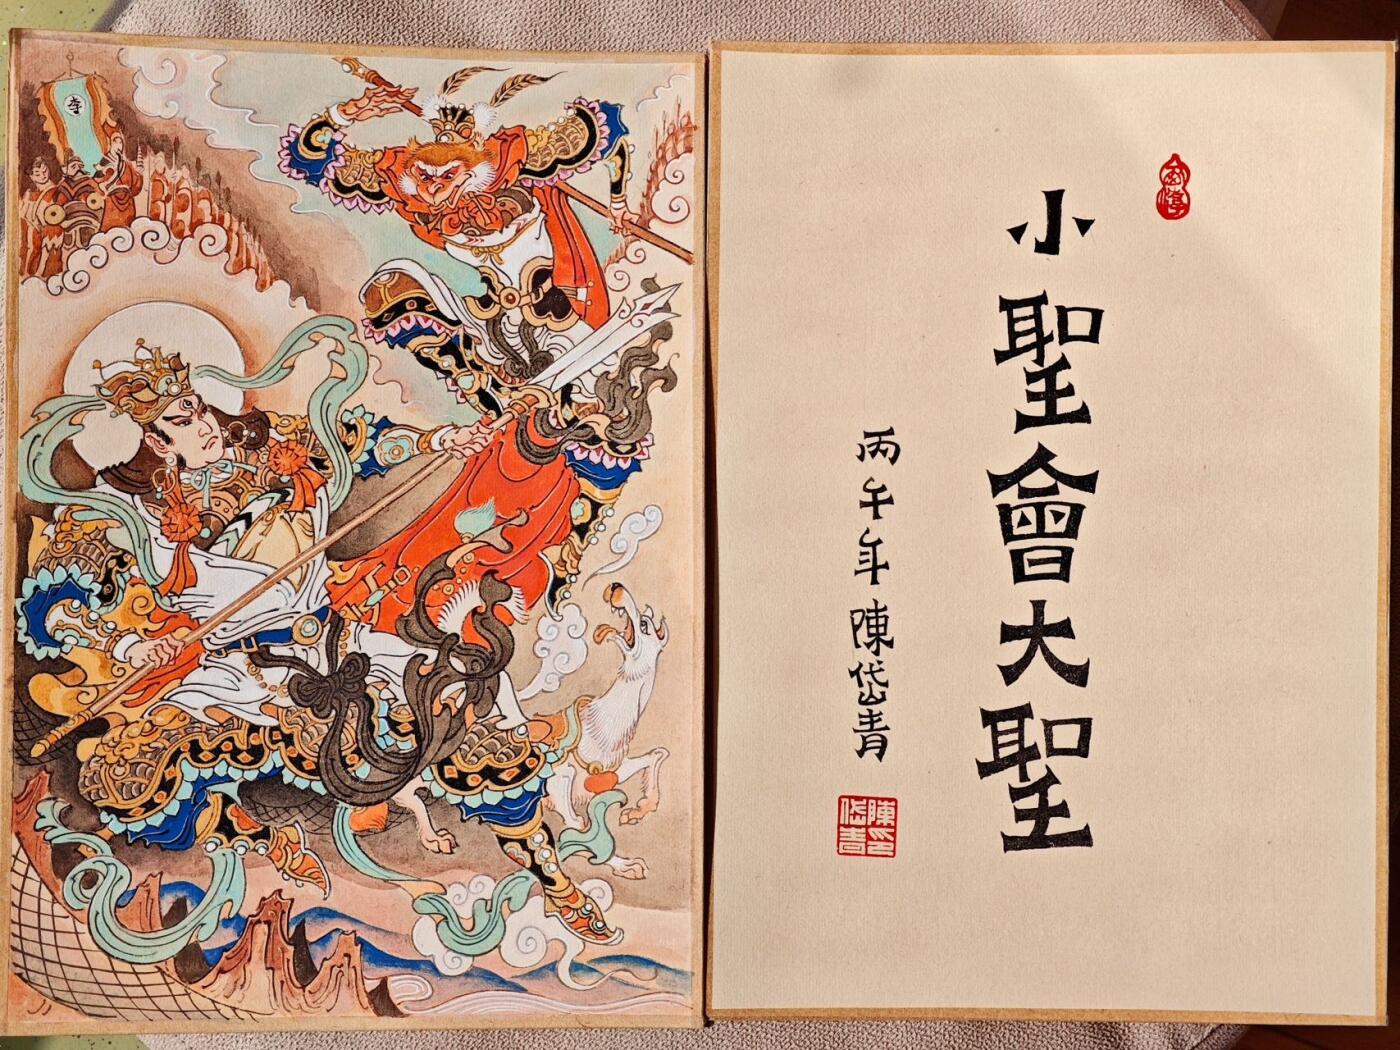 李
小聖會大聖
丙午年陳岱青
陳印岱青